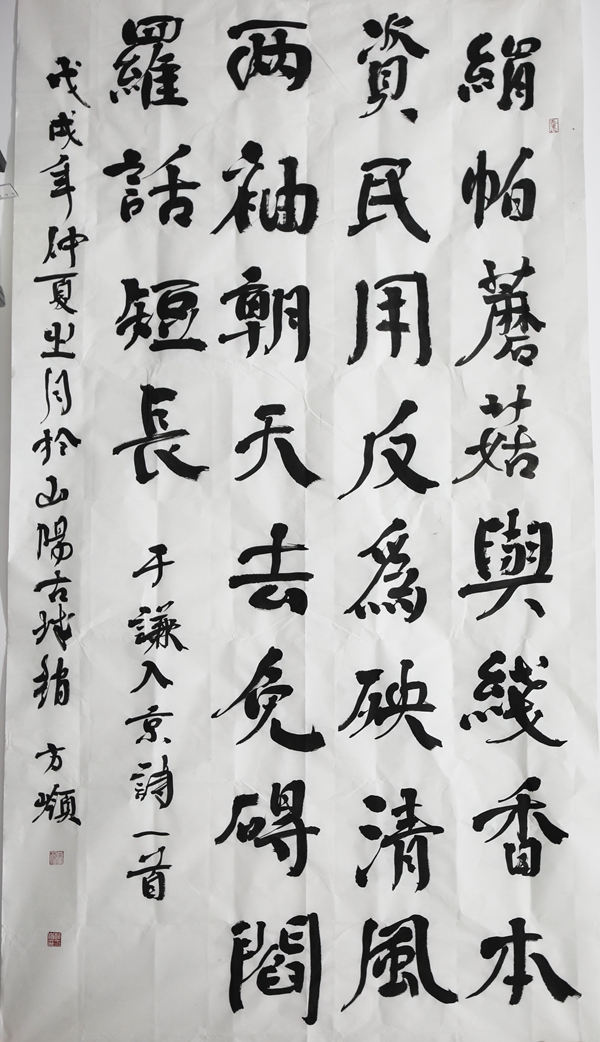 絹帕蘑菇與綫香本
資民用反為殃清風
两袖朝天去免碍閻
羅話短長
于謙入京詩一首
戊戌年仲夏之月於山陽古城 方